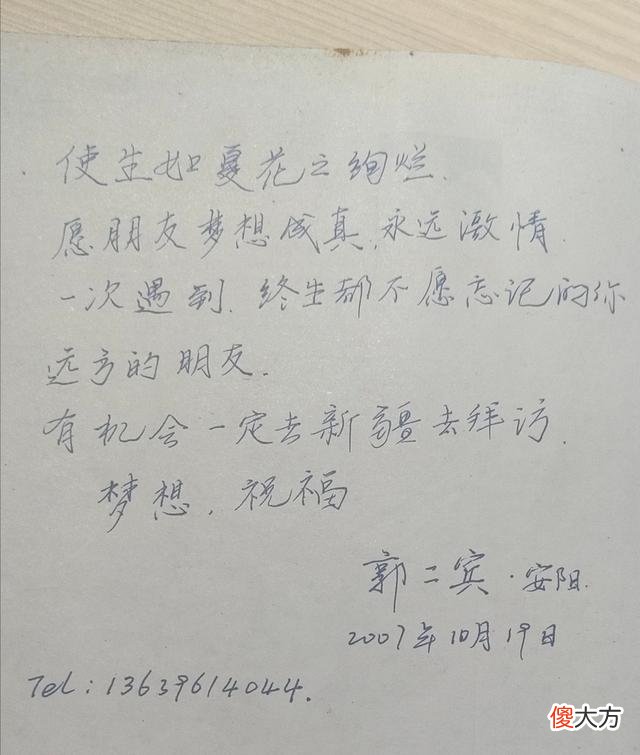 使生如夏花之绚烂.
愿朋友梦想成真,永远激情.
一次遇到.终生都不愿忘记的你
远方的朋友.
有机会一定去新疆去拜访.
梦想,祝福
郭二宾·安阳.
2007年10月19日
Tel:13639614044.
傻大方